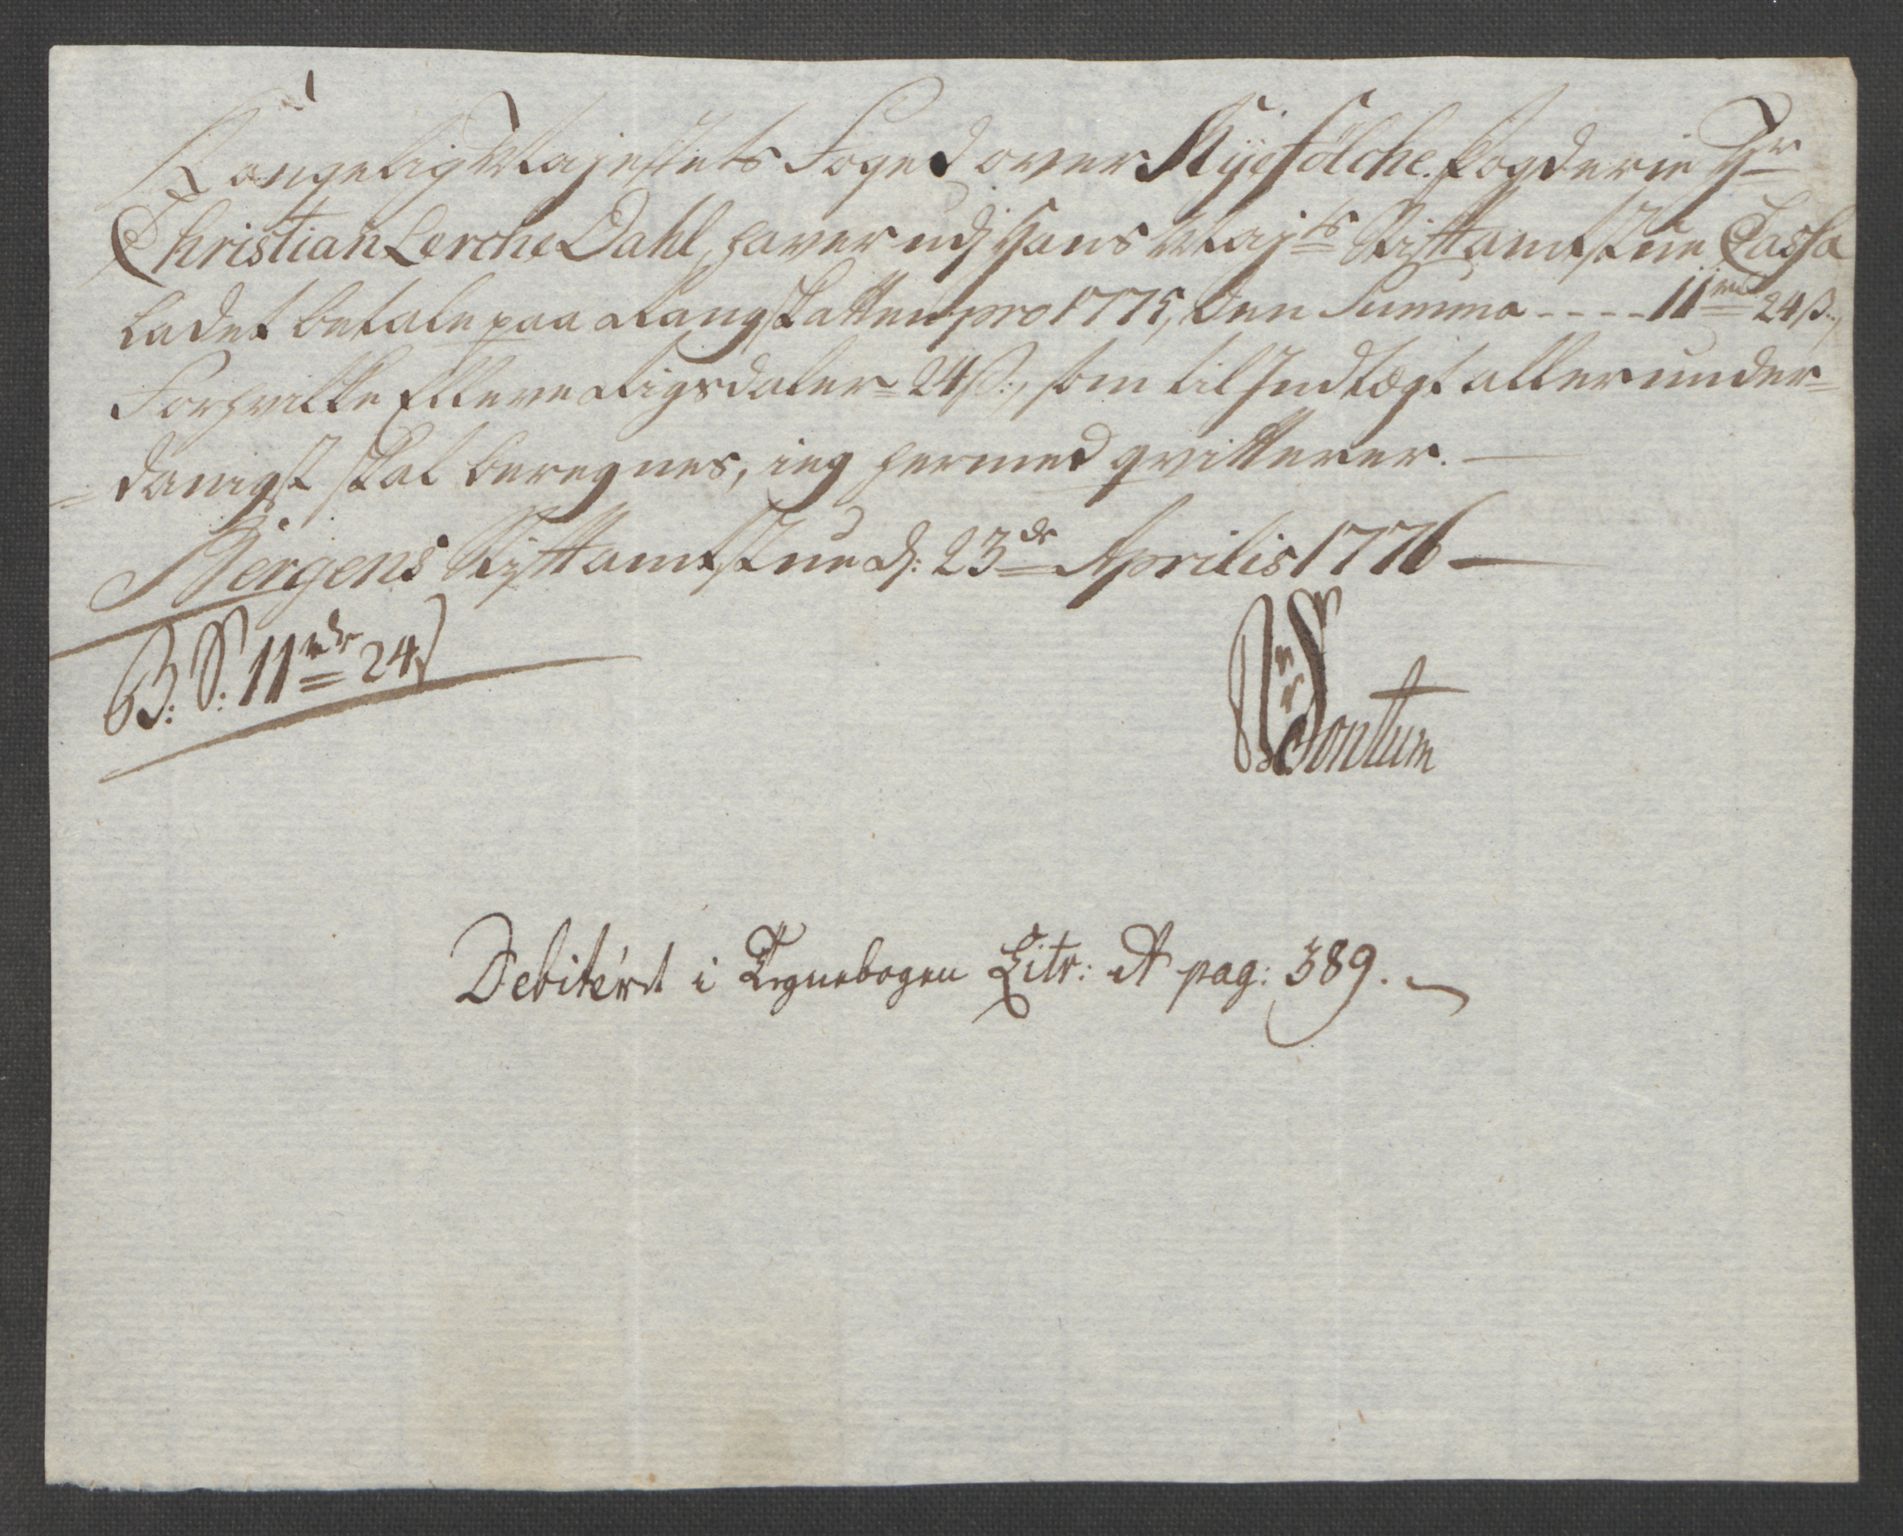 Kongelig Majestets Foged over Ryefölche fogderie Hr
Christian Lerche Dahl, haver udj Hans Majts Stiftamtstue Cassa
ladet betale paa Rangskatten pro 1775, den Summa - - - - 11 rd 24 ß.,
Forhvilke Elleve Rigsdaler 24 ß., som til Indtægt allerunder=
=danigst skal beregnes, ieg hermed qvitterer. —
Bergens Stiftamtstue d: 23de Aprilis 1776 —
B: S: 11 rdr 24 ß
Sontum
Debiteret i Regnebogen Litr: A pag: 389.